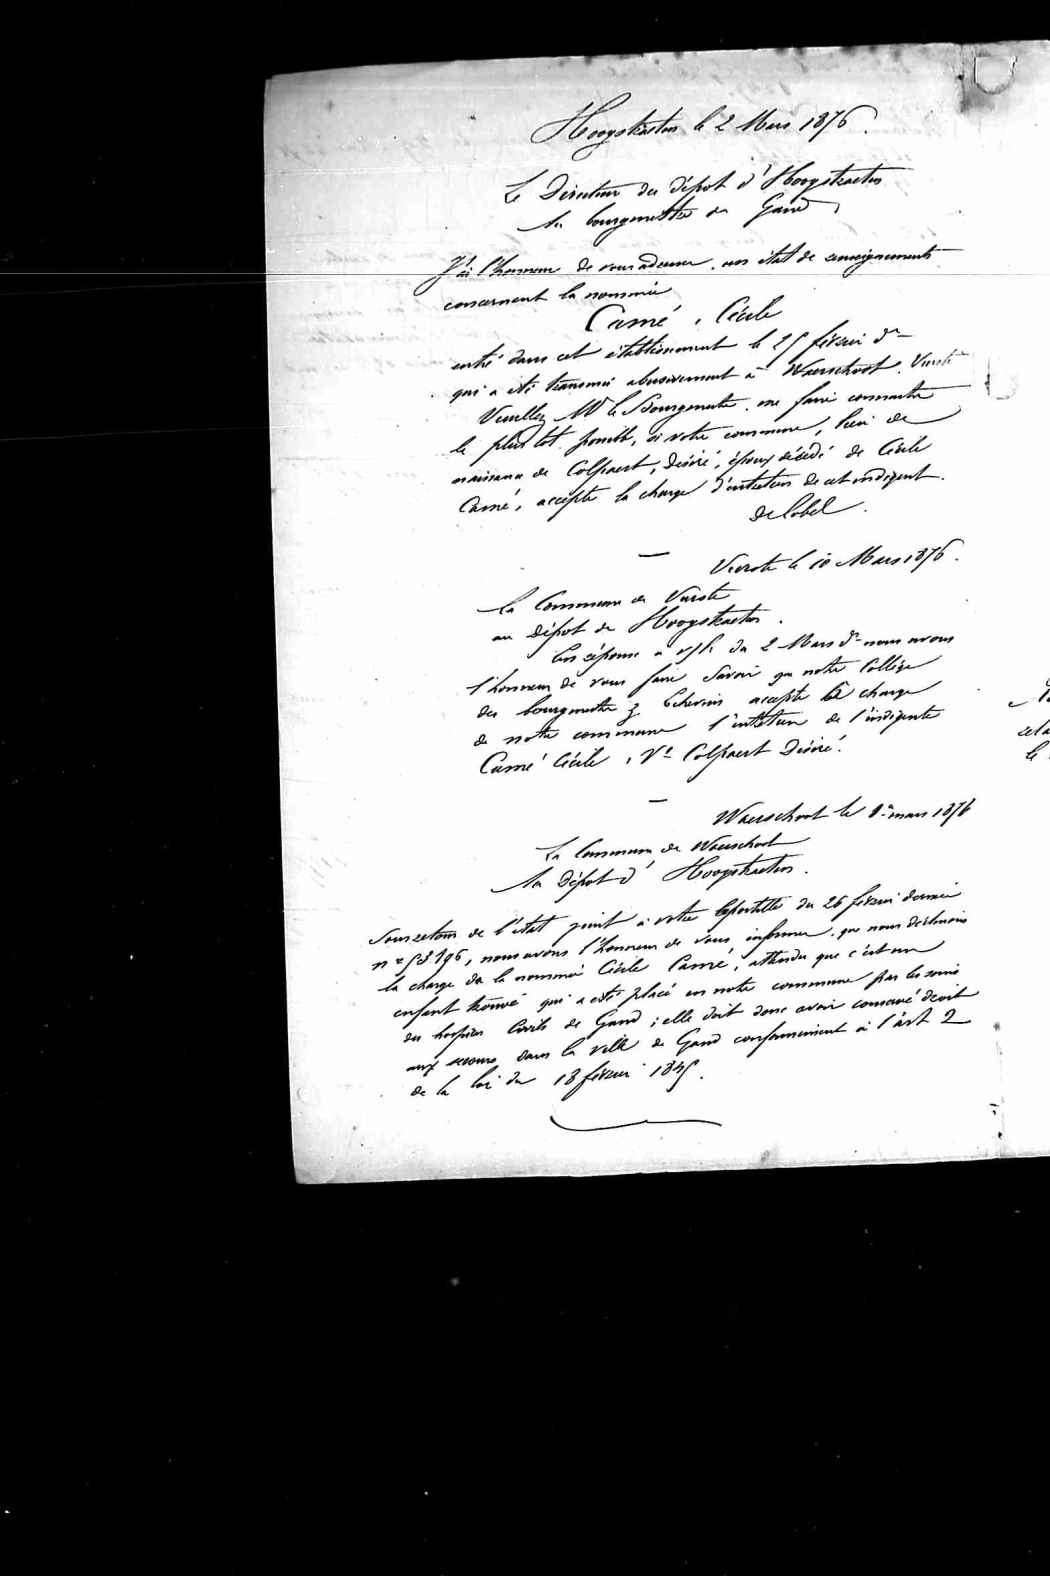 Hoogstraeten le 2 Mars 1876.
Le Directeur du dépot d'Hoogstraeten
au bourgmestre de Gand
J'ai l'honneur de vous adresser, un état de renseignements
concernant la nommée
Camé, Cécile
entré dans cet établissement le 25 février dr
qui a été transmis abusivement à Waerschoot. Vurste
Veuillez Mr le Bourgmestre, me faire connaitre
le plus tot possible, si votre commune, lieu de
naissance de Colpaert, Désiré, époux décédé de Cécile
Camé, accepte la charge d'entretien de cet indigent.
De Cobel.
Vurste le 10 Mars 1876.
La Commune de Vurste
au Dépot de Hoogstraeten.
En réponse a v/l. du 2 Mars dr nous avons
l'honneur de vous faire savoir que notre Collège
des bourgmestre & Echevins accepte la charge
de notre commune l'entretien de l'indigente
Camé Cécile, Ve Colpaert Désiré.
Waerschoot le 8 mars 1876
La Commune de Waerschoot
au Dépot d'Hoogstraeten.
Sous retour de l'état joint à votre dépêche du 26 février dernier
nous avons l'honneur de vous informer, que nous déclinons
la charge de la nommée Cécile Camé, attendu que c'est un
enfant trouvé qui a été placé en notre commune par les soins
des hospices Civils de Gand; elle doit donc avoir conservé droit
aux secours dans la ville de Gand conformément à l'art 2
de la loi du 18 février 1845.